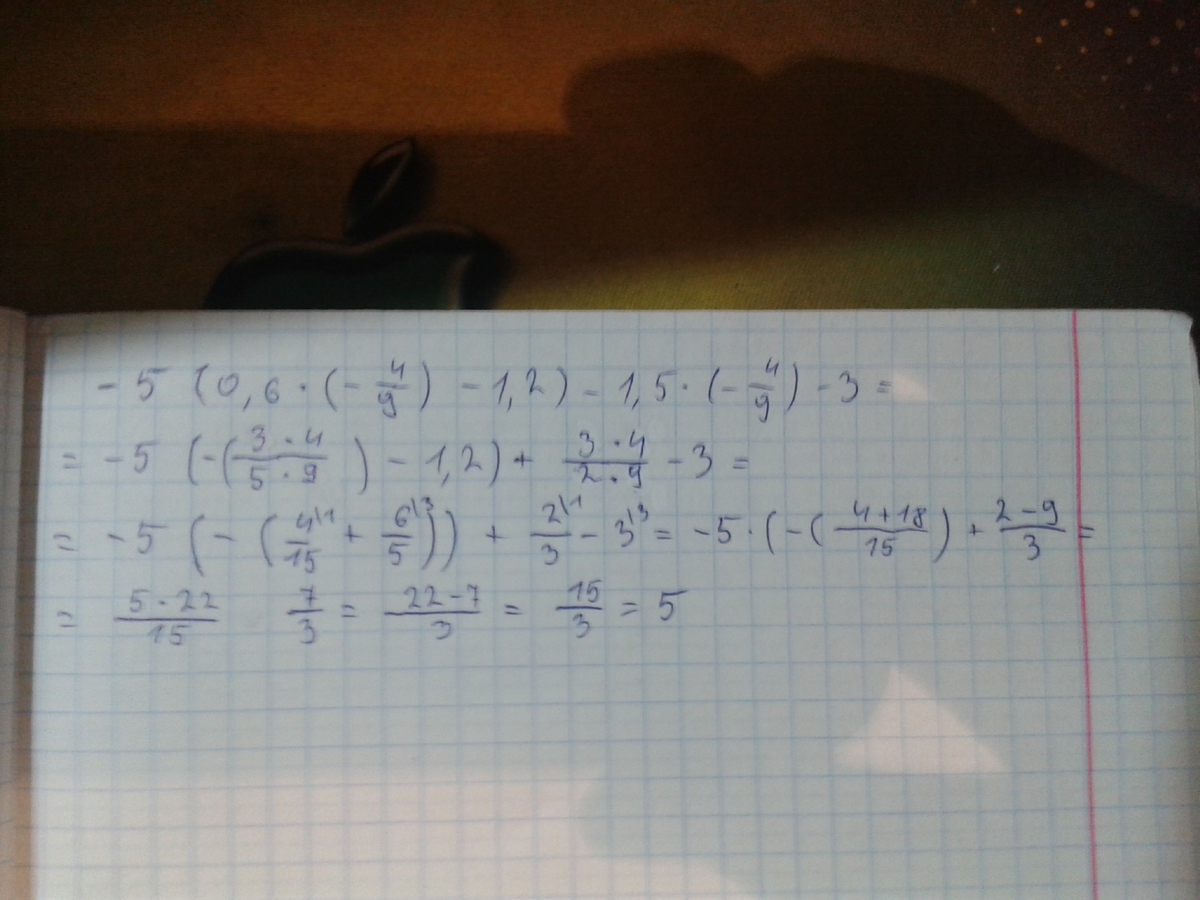 - 5 (0,6 · (- 4/9) - 1,2) - 1,5 · (- 4/9) - 3 =
= - 5 (-(3 · 4/5 · 9) - 1,2) + 3 · 4/2 · 9 - 3 =
= - 5 (- (4\1/15 + 6\3/5)) + 2\1/3 - 3\3 = - 5 · (-(4+18/15) + 2-9/3 =
= 5 · 22/15 7/3 = 22-7/3 = 15/3 = 5